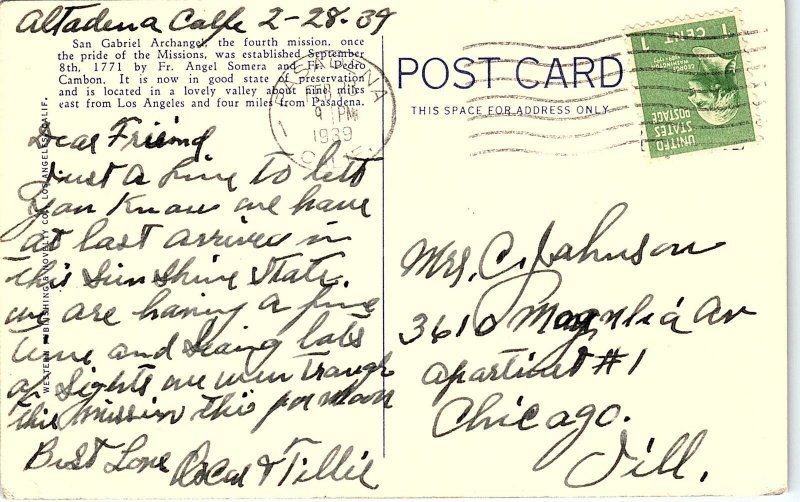 Altadena Calfe 2-28-39
San Gabriel Archangel, the fourth mission, once
the pride of the Missions, was established September
8th, 1771 by Fr. Angel Somera and Fr. Pedro
Cambon. It is now in good state of preservation
and is located in a lovely valley about nine miles
east from Los Angeles and four miles from Pasadena.
WESTERN PUBLISHING & NOVELTY CO., LOS ANGELES, CALIF.
Dear Friend
Just a line to lett
you know we have
at last arrived in
this Sun Shine State.
we are having a fine
time and seing lots
of Sights we wen trough
this mission this
Best Love Oscar & Tillie
PASADENA
FEB 28
9 PM
1939
CALIF.
POST CARD
THIS SPACE FOR ADDRESS ONLY
1 CENT 1
GEORGE WASHINGTON
UNITED
STATES
POSTAGE
Mrs. C. Johnson
3610 Magnolia Av
apartinet #1
Chicago.
Ill.